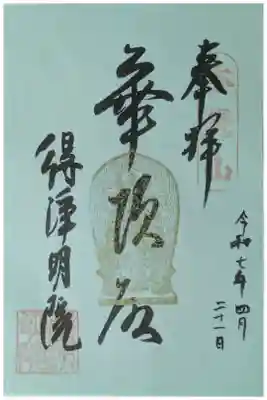 奉拝
令和七年四月
二十一日
華頂
得浄明院